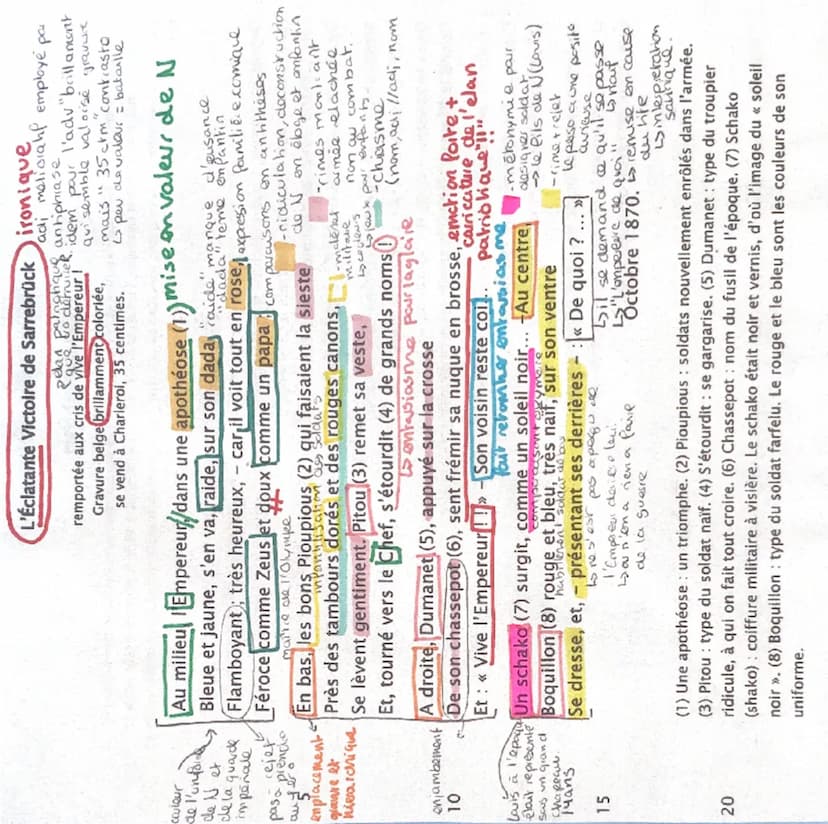 L'Éclatante Victoire de Sarrebrück
ironique
remportée aux cris de vive l'Empereur !
Gravure belge brillamment coloriée,
se vend à Charleroi, 35 centimes.
adj mélioratif employé par
antiphrase
idem pour l'adv "brillamment"
qui semble valorisé gravure
mais "35 ctm" contraste
↳ peu de valeur = bataille
Au milieu, l'Empereur, dans une apothéose (1)
mise en valeur de N
Bleue et jaune, s'en va, raide, sur son dada
"raide" manque d'aisance
"dada" terme enfantin
Flamboyant ; très heureux, – car il voit tout en rose,
expression familière comique
Féroce comme Zeus et doux comme un papa ;
comparaisons en antithèses
- ridiculisation, déconstruction
de N en éloge et enfantin
couleur
de l'uniforme
de N et
de la garde
impériale
rejet
maître de l'Olympe
En bas, les bons Pioupious (2) qui faisaient la sieste
infantilisation des soldats
5
Près des tambours dorés et des rouges canons,
Se lèvent gentiment. Pitou (3) remet sa veste,
Et, tourné vers le Chef, s'étourdit (4) de grands noms !
- rimes montrant
armée détachée
non au combat.
- matériel
militaire
↳ couleurs
↳ jeux pour enfants
- chiasme
(nom, adj // adj, nom
↳ enthousiasme pour la gloire
emplacement
gravure et
hiérarchique
A droite, Dumanet (5), appuyé sur la crosse
enjambement
10
De son chassepot (6), sent frémir sa nuque en brosse,
Et : « Vive l'Empereur !! » – Son voisin reste coi...
émotion forte +
caricature de l'élan
patriotique "!!"
fait retomber enthousiasme
Un schako (7) surgit, comme un soleil noir... – Au centre,
Boquillon (8) rouge et bleu, très naïf, sur son ventre
Se dresse, et, – présentant ses derrières – : « De quoi ?... »
- métonymie pour
désigner soldat
→ le fils de N (Louis)
- rime + rejet
Louis à l'époque
était représenté
sous un grand
chapeau.
14ans
↳ ne s'est pas aperçu que
l'Empereur derrière lui.
↳ on n'en a rien à faire
de la guerre
↳ il se demande ce qu'il se passe
↳ naïf
↳ "l'empereur de quoi"
↳ remise en cause
du titre
↳ interprétation
satirique.
Octobre 1870.
15
(1) Une apothéose : un triomphe. (2) Pioupious : soldats nouvellement enrôlés dans l'armée.
(3) Pitou : type du soldat naïf. (4) S'étourdit : se gargarise. (5) Dumanet : type du troupier
20
ridicule, à qui on fait tout croire. (6) Chassepot : nom du fusil de l'époque. (7) Schako
(shako) : coiffure militaire à visière. Le schako était noir et vernis, d'où l'image du « soleil
noir ». (8) Boquillon : type du soldat farfelu. Le rouge et le bleu sont les couleurs de son
uniforme.